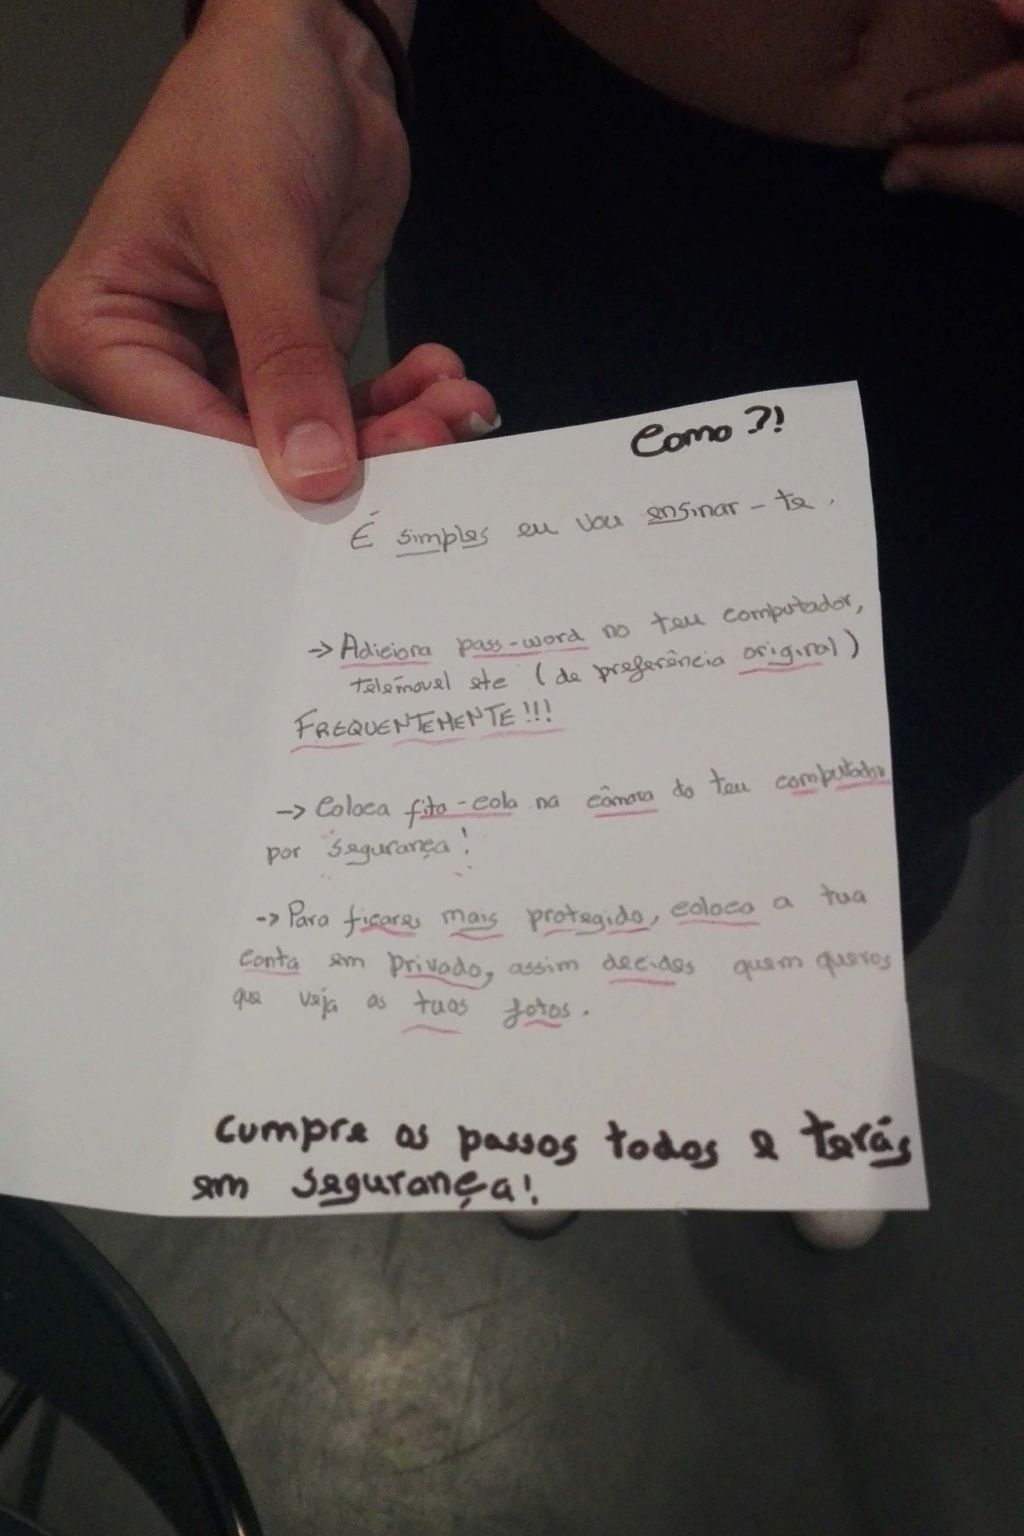 Como?!
É simples eu vou ensinar-te.
-> Adiciona pass-word no teu computador,
telemovel etc (de preferência original)
FREQUENTEMENTE!!!
-> Coloca fita-cola na câmara do teu computador
por segurança!
-> Para ficares mais protegido, coloca a tua
conta em privado, assim decides quem queres
que veja as tuas fotos.
Cumpre os passos todos e terás
em segurança!